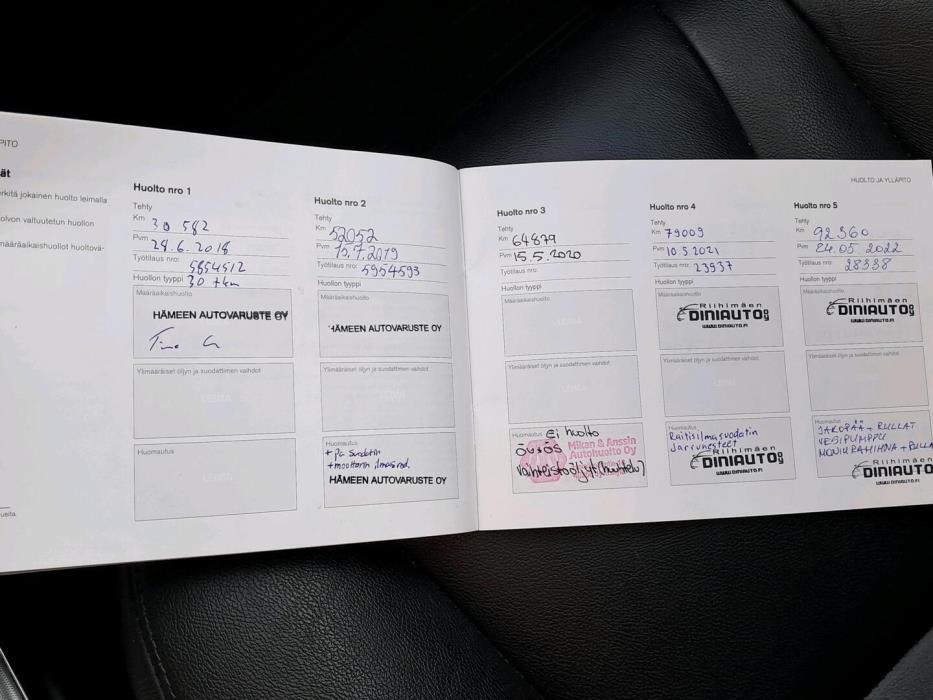 PITO
ät
rkitä jokainen huolto leimalla
olvon valtuutetun huollon
määräaikaishuollot huoltovä-
ueita.
Huolto nro 1
Tehty
Km 30 582
Pvm 29.6.2018
Työtilaus nro: 5854512
Huollon tyyppi 30 tkm
Määräaikaishuolto
HÄMEEN AUTOVARUSTE OY
Ylimääräiset öljyn ja suodattimen vaihdot
LEIMA
Huomautus
Huolto nro 2
Tehty
Km 52052
Pvm 15.7.2019
Työtilaus nro: 5954593
Huollon tyyppi
Määräaikaishuolto
HÄMEEN AUTOVARUSTE OY
Ylimääräiset öljyn ja suodattimen vaihdot
LEIMA
Huomautus
+ pa suodatin
+ moottorin ilmasuod.
HÄMEEN AUTOVARUSTE OY
HUOLTO JA YLLÄPITO
Huolto nro 3
Tehty
Km 64879
Pvm 15.5.2020
Työtilaus nro:
Huollon tyyppi
Määräaikaishuolto
LEIMA
Ylimääräiset öljyn ja suodattimen vaihdot
LEIMA
Huomautus Ei huolto
Mikan & Anssin
Autohuolto Oy
Vaihteistoöljyt (huuhtelu)
Huolto nro 4
Tehty
Km 79009
Pvm 10.5.2021
Työtilaus nro: 23937
Huollon tyyppi
Määräaikaishuolto
Riihimäen
DINIAUTO OY
WWW.DINIAUTO.FI
Ylimääräiset öljyn ja suodattimen vaihdot
LEIMA
Huomautus
Raitisilmasuodatin
Jarrunesteet
Riihimäen
DINIAUTO OY
WWW.DINIAUTO.FI
Huolto nro 5
Tehty
Km 92360
Pvm 24.05.2022
Työtilaus nro: 28338
Huollon tyyppi
Määräaikaishuolto
Riihimäen
DINIAUTO OY
WWW.DINIAUTO.FI
Ylimääräiset öljyn ja suodattimen vaihdot
LEIMA
Huomautus
JAKOPÄÄ + RULLAT
VESIPUMPPU
MONIURAHIHNA + RULLA
Riihimäen
DINIAUTO
WWW.DINIAUTO.FI